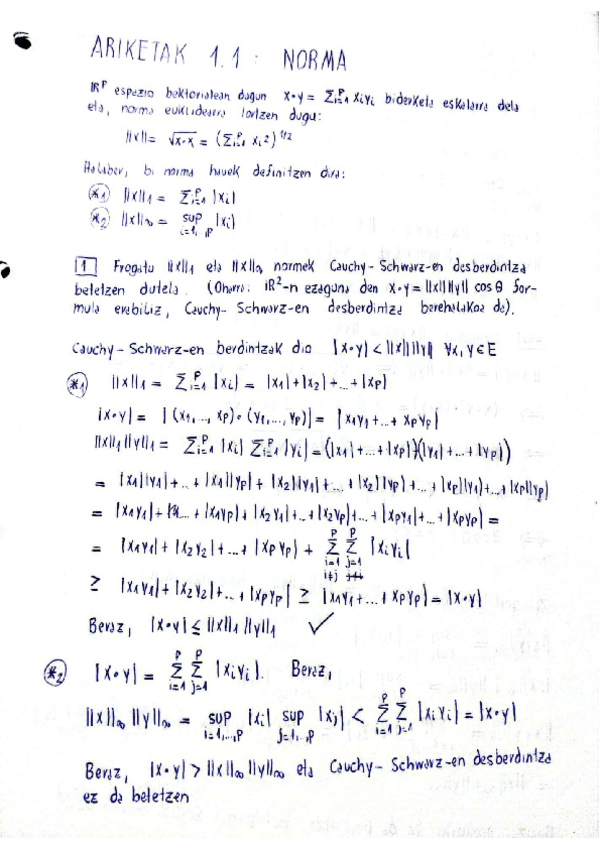 ARIKETAK 1.1: NORMA
IR^p espazio bektorialean dugun x•y = Σ_{i=1}^p x_i y_i biderketa eskalarra dela
eta, norma euklidearra lortzen dugu:
||x|| = √x•x = (Σ_{i=1}^p x_i²)^{1/2}
Halaber, bi norma hauek definitzen dira:
*1 ||x||_1 = Σ_{i=1}^p |x_i|
*2 ||x||_∞ = sup_{i=1,..,p} |x_i|
1 Frogatu ||x||_1 eta ||x||_∞ normek Cauchy-Schwarz-en desberdintza
betetzen dutela. (Oharra: IR²-n ezaguna den x•y = ||x|| ||y|| cos θ for-
mula erabiliz, Cauchy-Schwarz-en desberdintza berehalakoa da).
Cauchy-Schwarz-en berdintzak dio |x•y| < ||x|| ||y|| ∀x,y ∈ E
*1 ||x||_1 = Σ_{i=1}^p |x_i| = |x_1|+|x_2|+...+|x_p|
|x•y| = |(x_1,...,x_p)•(y_1,...,y_p)| = |x_1y_1+...+x_py_p|
||x||_1 ||y||_1 = Σ_{i=1}^p |x_i| Σ_{i=1}^p |y_i| = (|x_1|+...+|x_p|)(|y_1|+...+|y_p|)
= |x_1||y_1|+...+|x_1||y_p|+|x_2||y_1|+...+|x_2||y_p|+...+|x_p||y_1|+...+|x_p||y_p|
= |x_1y_1|+...+|x_1y_p|+|x_2y_1|+...+|x_2y_p|+...+|x_py_1|+...+|x_py_p| =
= |x_1y_1|+|x_2y_2|+...+|x_py_p| + Σ_{i=1, i≠j}^p Σ_{j=1}^p |x_iy_i|
≥ |x_1y_1|+|x_2y_2|+...+|x_py_p| ≥ |x_1y_1+...+x_py_p| = |x•y|
Beraz, |x•y| ≤ ||x||_1 ||y||_1 ✓
*2 |x•y| = Σ_{i=1}^p Σ_{j=1}^p |x_iy_i|. Beraz,
||x||_∞ ||y||_∞ = sup_{i=1,..,p} |x_i| sup_{j=1,..,p} |x_j| < Σ_{i=1}^p Σ_{j=1}^p |x_iy_i| = |x•y|
Beraz, |x•y| > ||x||_∞ ||y||_∞ eta Cauchy-Schwarz-en desberdintza
ez da betetzen